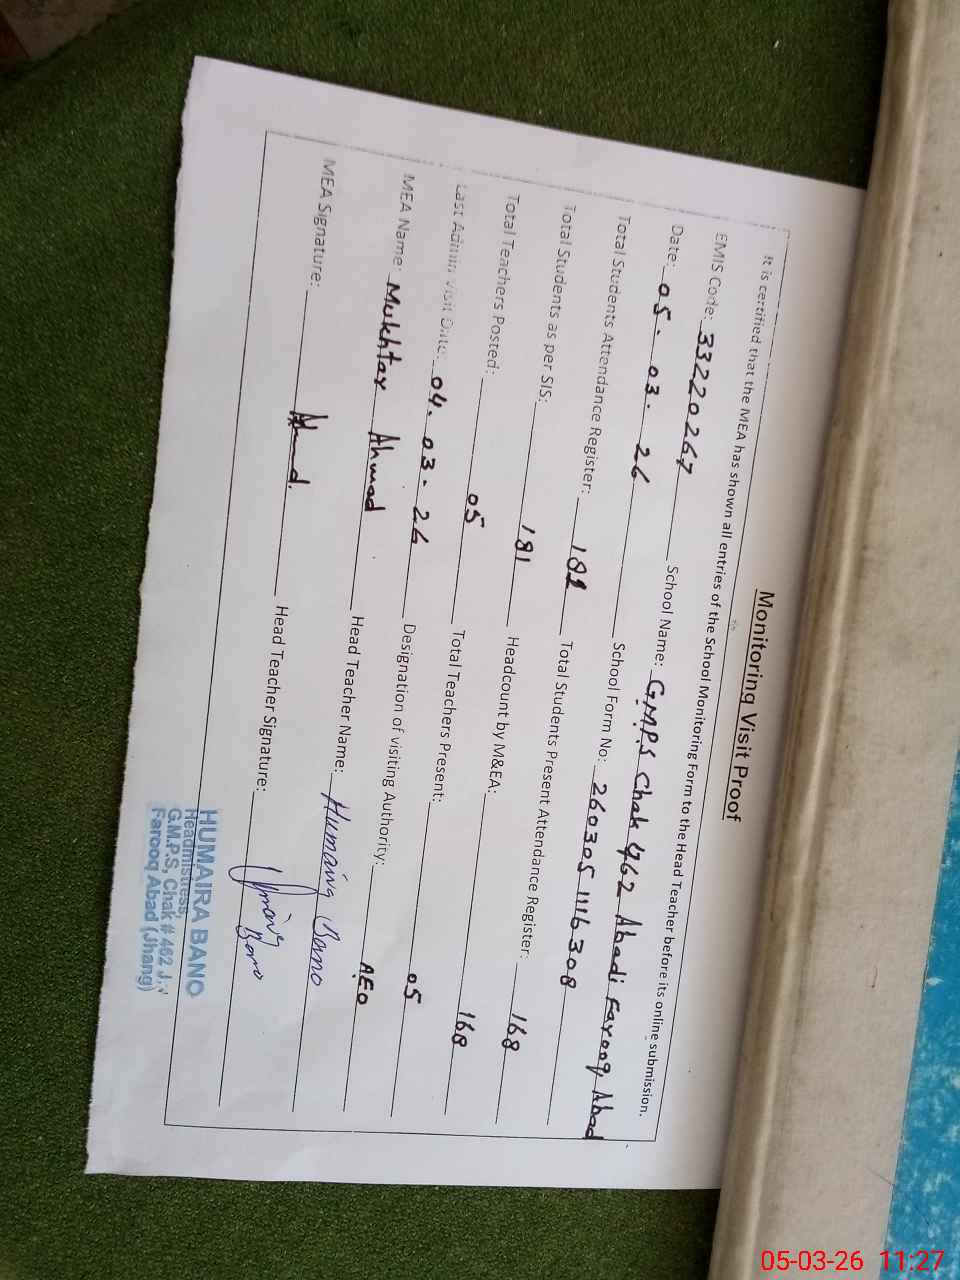 Monitoring Visit Proof
It is certified that the MEA has shown all entries of the School Monitoring Form to the Head Teacher before its online submission.
EMIS Code: 33220267 School Name: G.M.P.S Chak 462 Abadi Farooq Abad
Date: 05. 03. 26 School Form No: 260305 1116308
Total Students Attendance Register: 181 Total Students Present Attendance Register: 168
Total Students as per SIS: 181 Headcount by M&EA: 168
Total Teachers Posted: 05 Total Teachers Present: 05
Last Admin Visit Date: 04. 03. 26 Designation of visiting Authority: AEO
MEA Name: Mukhtar Ahmad Head Teacher Name: Humaira Bano
MEA Signature: Head Teacher Signature: Bano
HUMAIRA BANO
Headmistress,
G.M.P.S, Chak # 462 J.
Farooq Abad (Jhang)
05-03-26 11:27